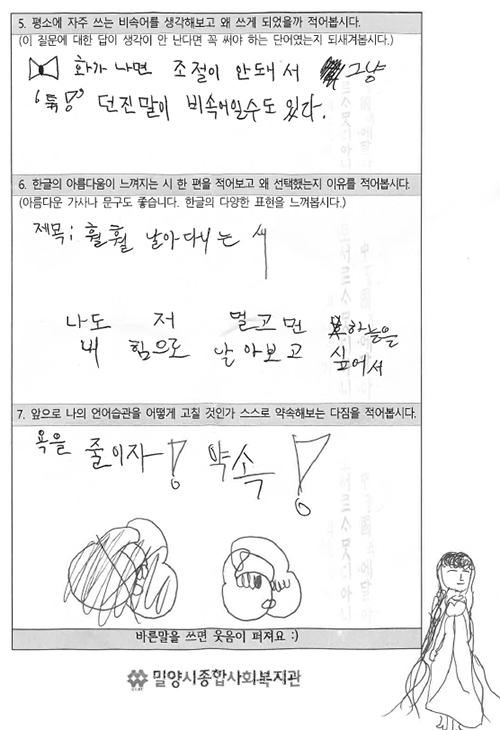 5. 평소에 자주 쓰는 비속어를 생각해보고 왜 쓰게 되었을까 적어봅시다.
(이 질문에 대한 답이 생각이 안 난다면 꼭 써야 하는 단어였는지 되새겨봅시다.)
화가 나면 조절이 안돼서 그냥
던진말이 비속어일수도 있다.
6. 한글의 아름다움이 느껴지는 시 한 편을 적어보고 왜 선택했는지 이유를 적어봅시다.
(아름다운 가사나 문구도 좋습니다. 한글의 다양한 표현을 느껴봅시다.)
제목; 훨훨 날아다니는 새
나도 저 멀고 먼 하늘을
내 힘으로 날아보고 싶어서
7. 앞으로 나의 언어습관을 어떻게 고칠 것인가 스스로 약속해보는 다짐을 적어봅시다.
욕을 줄이자! 약속!
바른말을 쓰면 웃음이 퍼져요 :)
밀양시종합사회복지관